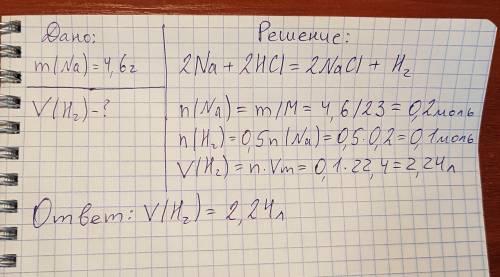 Дано:
m(Na)=4,6г
V(H₂)-?
Решение:
2Na+2HCl=2NaCl+H₂
n(Na)=m/M=4,6/23=0,2моль
n(H₂)=0,5n(Na)=0,5·0,2=0,1моль
V(H₂)=n·Vm=0,1·22,4=2,24л
Ответ: V(H₂)=2,24л